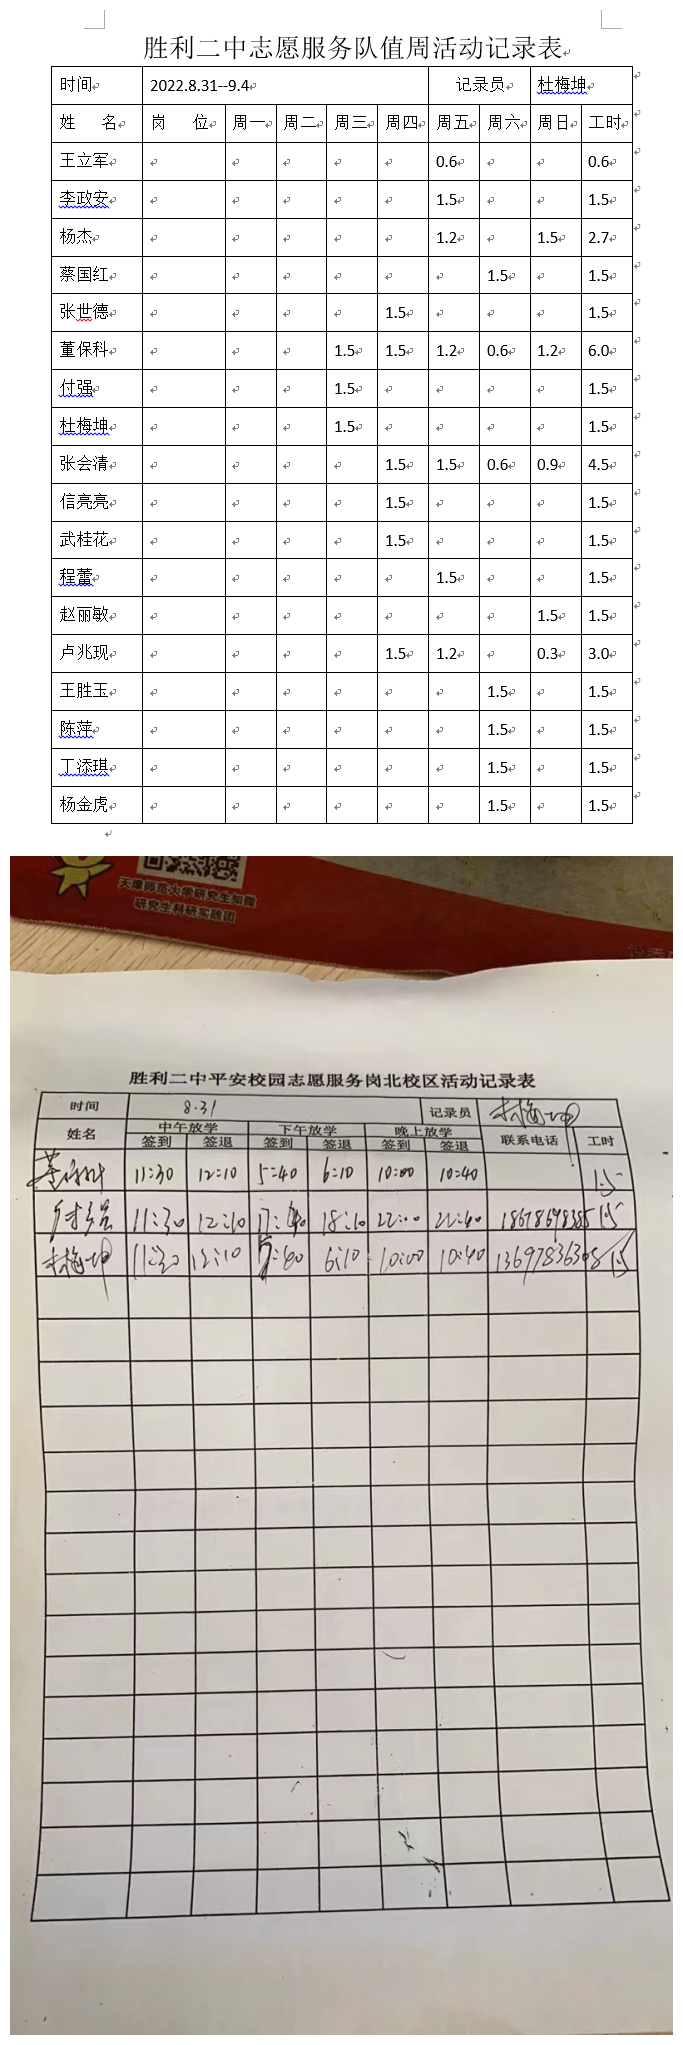 胜利二中志愿服务队值周活动记录表
时间 2022.8.31--9.4 记录员 杜梅坤
姓 名 岗 位 周一 周二 周三 周四 周五 周六 周日 工时
王立军 0.6 0.6
李政安 1.5 1.5
杨杰 1.2 1.5 2.7
蔡国红 1.5 1.5
张世德 1.5 1.5
董保科 1.5 1.5 1.2 0.6 1.2 6.0
付强 1.5 1.5
杜梅坤 1.5 1.5
张会清 1.5 1.5 0.6 0.9 4.5
信亮亮 1.5 1.5
武桂花 1.5 1.5
程蕾 1.5 1.5
赵丽敏 1.5 1.5
卢兆现 1.5 1.2 0.3 3.0
王胜玉 1.5 1.5
陈萍 1.5 1.5
丁添琪 1.5 1.5
杨金虎 1.5 1.5
天津师范大学研究生知微
研究生科研实践团
胜利二中平安校园志愿服务岗北校区活动记录表
时间 8.31 记录员 杜梅坤
姓名 中午放学 下午放学 晚上放学 联系电话 工时
签到 签退 签到 签退 签到 签退
董保科 11:30 12:10 5:40 6:10 10:00 10:40 1.5
11:30 12:10 17:40 18:10 22:00 22:40 1.5
杜梅坤 11:30 12:10 5:40 6:10 10:00 10:40 1.5